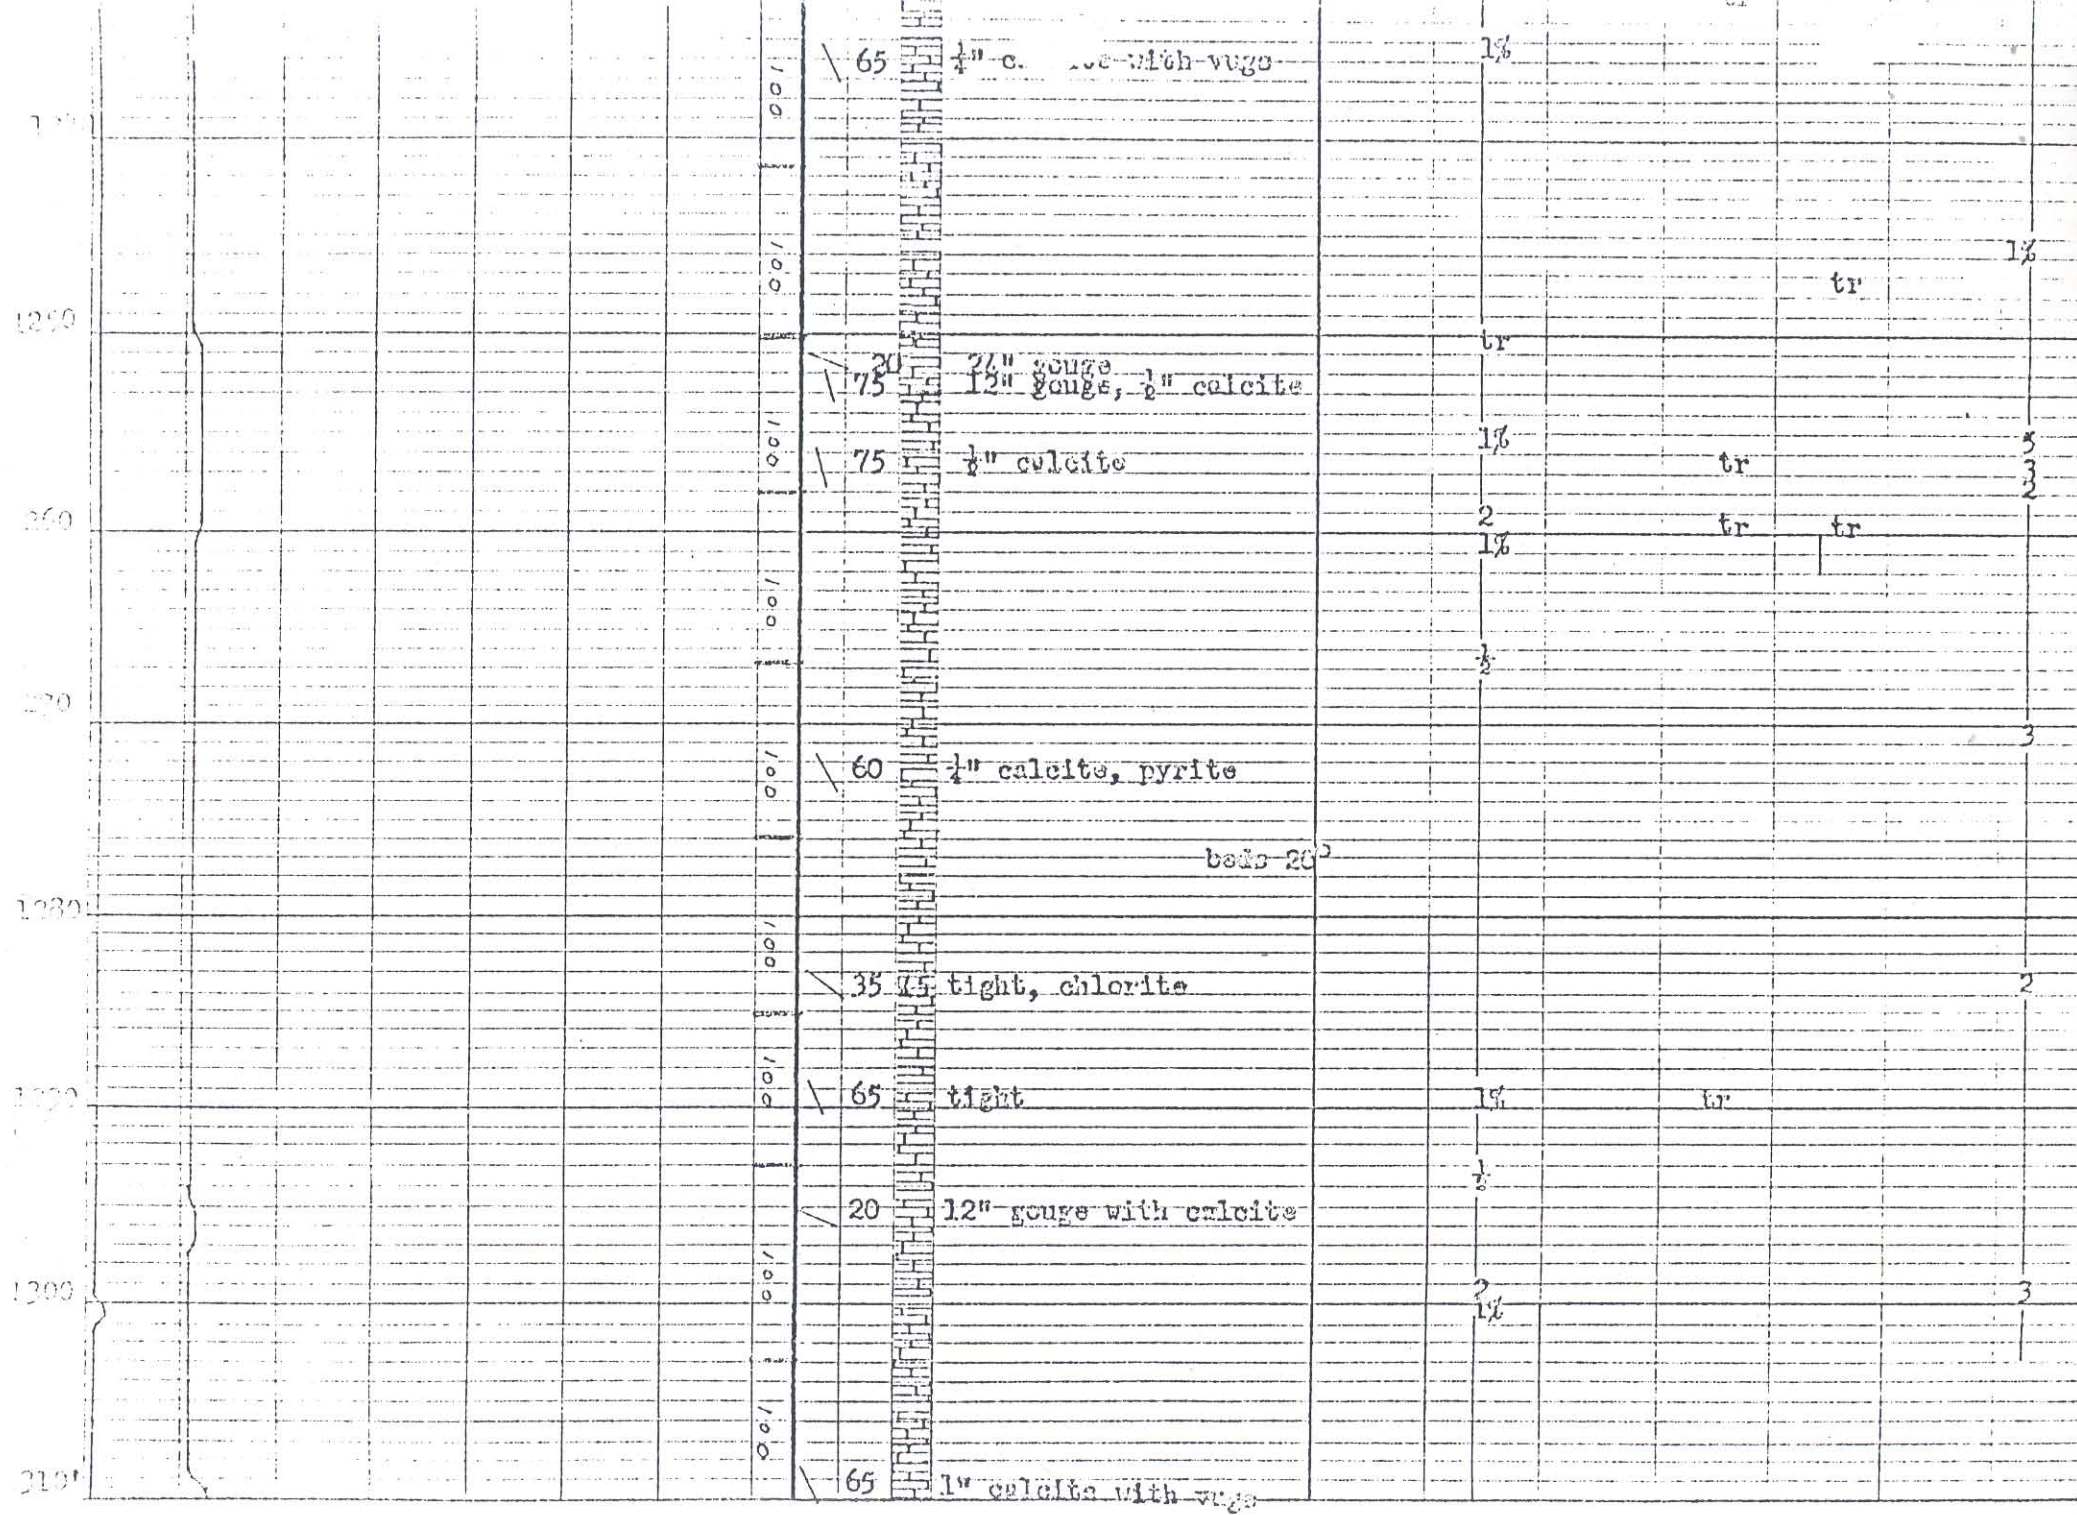 65 ¼" with vugs 1%
100
1%
100
tr
1250
tr
20 24" gouge
75 12" gouge, ½" calcite
1% 5
100
75 ½" calcite tr 3
2
260 2 tr tr
1%
100
½
270
3
100 60 ¼" calcite, pyrite
beds 20°
1280
100
35 tight, chlorite 2
100
1290 65 tight 1% tr
½
20 12" gouge with calcite
100
1300 2 3
1%
100
310' 65 1" calcite with vugs